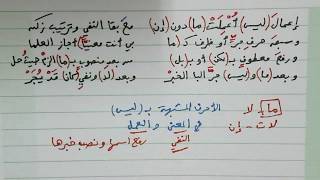 إعمالَ (ليس) أُعْمِلَتْ (ما) دون (إن) مع بقا النفي وترتيب زُكِن
وسبقَ حرفِ جرٍّ أو ظرفٍ كـ (ما) بي أنت معنيّاً) أجاز العلما
ورفعَ معطوفٍ بـ(لكن) أو بـ(بل) من بعد منصوبٍ بـ(ما) الزم حيث حل
وبعد (ما) و(ليس) جرَّ البا الخبر وبعد (لا) ونفي (كان) قد يُجَر
ما لا الأحرف المشبهة بـ (ليس)
لات - إن في المعنى والعمل
النفي رفع اسمها ونصب خبرها